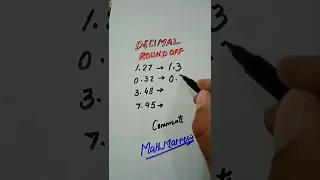 DECIMAL
ROUND OFF
1.27 → 1.3
0.32 → 0.
3.48 →
7.95 →
Comments
Math Marrow